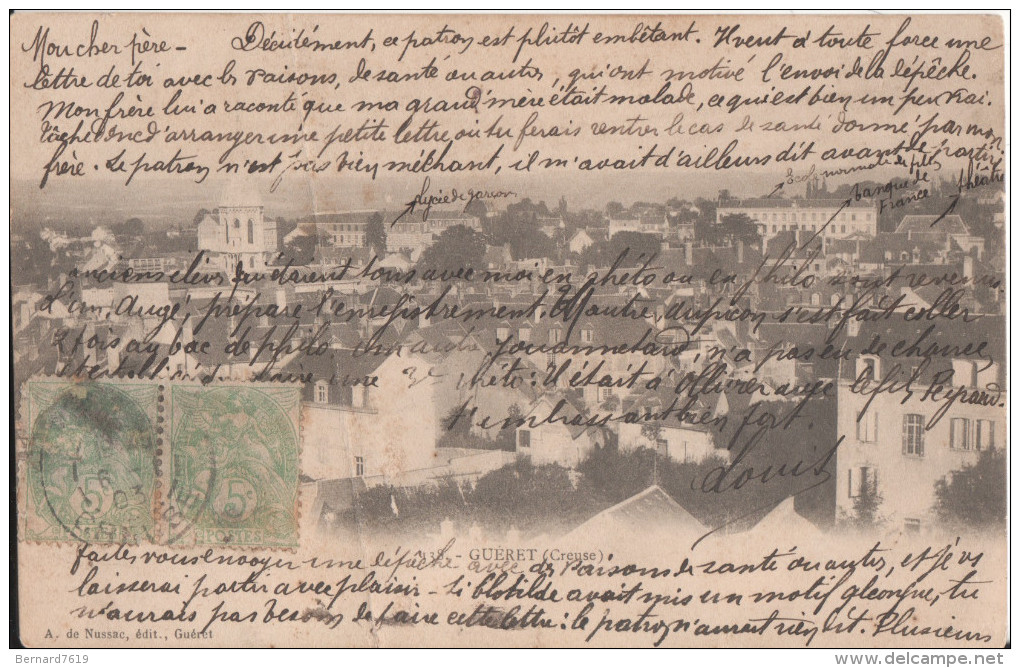 Mon cher père - Décidément, ce patron est plutôt embêtant. Il veut à toute force une
lettre de toi avec les raisons, de santé ou autres, qui ont motivé l'envoi de la dépêche.
Mon frère lui a raconté que ma grand'mère était malade, ce qui est bien un peu vrai.
Tâche donc d'arranger une petite lettre où tu ferais rentrer le cas de santé donné par mon
frère. Le patron n'est pas bien méchant, il m'avait d'ailleurs dit avant de partir
Lycée de garçon
École normale de filles
banque de
France
théâtre
anciens élèves qui étaient tous avec moi en rhéto ou en philo sont revenus.
d'un, Augé, prépare l'enregistrement. Un autre, dupicon, s'est fait coller
2 fois au bac de philo. Un autre Jouannetaud, n'a pas eu de chance
faire une 3e rhéto: Il était à Ollivier avec le fils Peyraud.
t'embrassant bien fort.
Louis
5c
POSTES
- GUÉRET (Creuse)
faites vous envoyer une dépêche avec des raisons de santé ou autres, et je vs
laisserai partir avec plaisir - Si Clotilde avait mis un motif qlconque, tu
n'aurais pas besoin de faire cette lettre: le patron n'aurait rien dit. Plusieurs
A. de Nussac, édit., Guéret
Bernard7619
delcampe.net